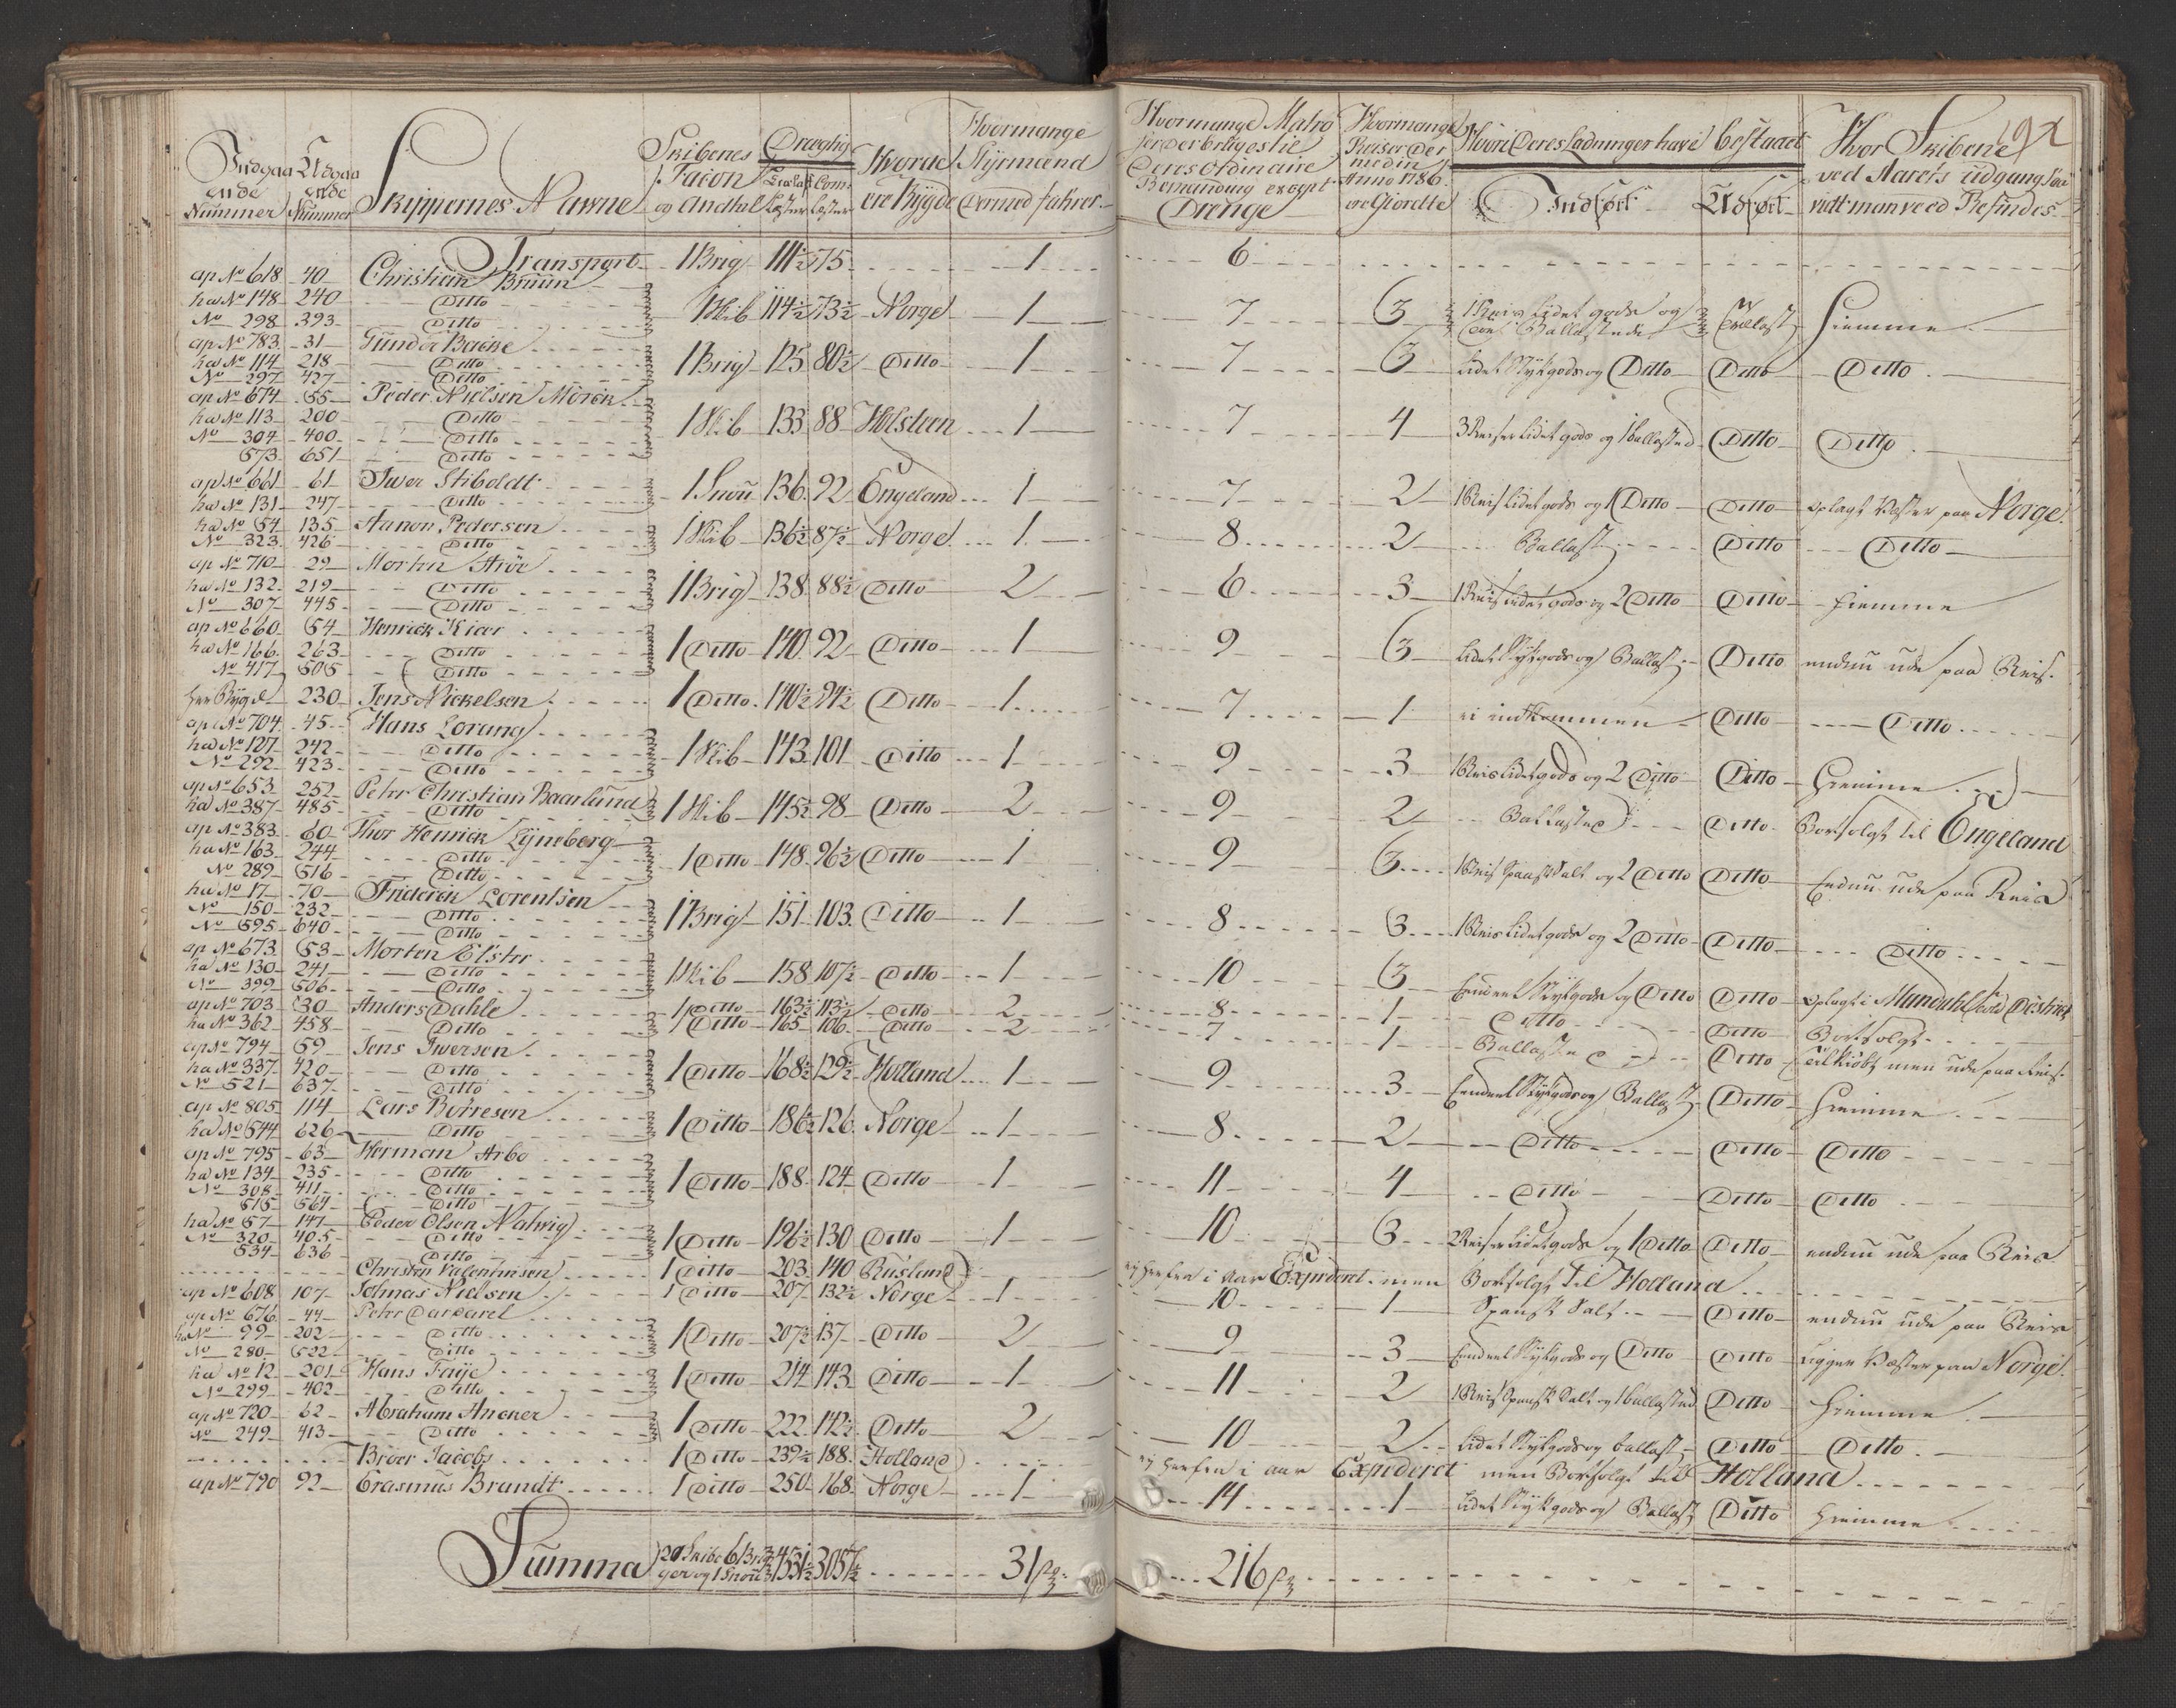 Indgaaende Nummer | Udgaaende Nummer | Skippernes Nawne | Skibenes Facon og Andtal | Drægtig: Trælast Læster, Com: Læster | Hvorudi ere Bÿgde | Hvormange Stÿrmænd dermed fahrer
Hvormange Matroser der brúges til Deres Ordinaire Bemanding exept Drenge | Hvormange Reiser der med in Anno 1786 ere Giordte | Hvori Deres Ladninger have bestaaet: Indført, Udført | Hvor Skibene ved Aarets údgang saa vidt man veed Befindes
92
Transport 1 Brig 111½ 75 1 6
ap No 618 40 Christian Brúún
ha No 148 240 Ditto 1 Skib 114½ 73½ Norge 1 7 3 1 Reis Lidet gods og Ballastede Trælast Hiemme
No 298 393 Ditto
ap No 783 31 Gunder Backe
ha No 114 218 Ditto 1 Brig 125 80½ Ditto 1 7 3 Lidet Stÿkgods og Ditto Ditto Ditto
No 297 427 Ditto
ap No 674 55 Peder Nielsen Mörck
ha No 113 200 Ditto 1 Skib 133 88 Holsteen 1 7 4 3 Reiser Lidet gods og 1 ballasted Ditto Ditto
No 304 400 Ditto
573 651 Ditto
ap No 661 61 Iwer Stiboldt 1 Snoú 136 92 Engeland 1 7 2 1 Reis Lidet gods og 1 Ditto Ditto oplagt Væster paa Norge
ha No 131 247 Ditto
ha No 54 135 Aanon Pedersen 1 Skib 136½ 87½ Norge 1 8 2 Ballast Ditto Ditto
No 323 426 Ditto
ap No 710 29 Morten Aröe
ha No 132 219 Ditto 1 Brig 138 88½ Ditto 2 6 3 1 Reis Lidet gods og 2 Ditto Ditto hiemme
No 307 445 Ditto
ap No 660 54 Henrick Kiær
ha No 166 263 Ditto 1 Ditto 140 92 Ditto 1 9 3 Lidet Stÿkgods og Ballast Ditto endnu ude paa Reis
No 417 505 Ditto
her Bÿgd 230 Jens Nickelsen 1 Ditto 140½ 94½ Ditto 1 7 1 ei indkommen Ditto Ditto
ap No 704 45 Hans Lorung
ha No 127 242 Ditto 1 Skib 143 101 Ditto 1 9 3 1 Reis Lidet gods og 2 Ditto Ditto Hiemme
No 292 423 Ditto
ap No 653 252 Peter Christian Baarlund 1 Skib 145½ 98 Ditto 2 9 2 Ballasted Ditto Bortsolgt til Engelland
ha No 387 485 Ditto
ap No 383 60 Thor Henrick Lÿneberg
ha No 163 244 Ditto 1 Ditto 148 96½ Ditto 1 9 3 1 Reis Spansk Salt og 2 Ditto Ditto Endnu ude paa Reis
No 289 516 Ditto
ha No 17 70 Friderick Lorentsen
No 150 232 Ditto 1 Brig 151 103 Ditto 1 8 3 1 Reis Lidet gods og 2 Ditto Ditto Ditto
No 595 640 Ditto
ap No 673 53 Morten Elster
ha No 130 241 Ditto 1 Skib 158 107½ Ditto 1 10 3 Eendeel Stÿkgods og Ditto Ditto oplagt i Mandahls told Distrikt
No 399 506 Ditto
ap No 703 30 Anders Dahle 1 Ditto 163½ 113½ Ditto 2 8 1 Ditto Ditto Bortsolgt
ha No 362 458 Ditto 1 Ditto 165 106 Ditto 2 7 1 Ballasted Ditto Tilkiöbt, men ude paa Reis
ap No 794 59 Jens Iwersen
ha No 337 420 Ditto 1 Ditto 168½ 129½ Holland 1 9 3 Eendeel Stÿkgods og Ballast Ditto Hiemme
No 521 637 Ditto
ap No 805 114 Lars Borresen 1 Ditto 186½ 126 Norge 1 8 2 Ditto Ditto Ditto
ha No 544 626 Ditto
ap No 795 63 Herman Arbo
ha No 134 235 Ditto 1 Ditto 188 124 Ditto 1 11 4 Ditto Ditto Ditto
No 308 411 Ditto
515 564 Ditto
ha No 57 141 Peder Olsen Natwig
No 320 405 Ditto 1 Ditto 196½ 130 Ditto 1 10 3 2 Reiser Lidet gods og 1 Ditto Ditto endnu ude paa Reis
534 636 Ditto
Christen Valentinsen 1 Ditto 203 140 Rusland ej herfra i Aar Expederet men Bortsolgt til Holland
ap No 608 107 Tolmas Nielsen 1 Ditto 207 132½ Norge 1 10 1 Spansk Salt Ditto endnu ude paa Reis
ap No 676 44 Peter Darcarel
ha No 99 202 Ditto 1 Ditto 207½ 137 Ditto 2 9 3 Eendeel Stÿkgods og Ditto Ditto Ligger Væster paa Norge
No 280 522 Ditto
ha No 12 201 Hans Faÿe 1 Ditto 214 143 Ditto 1 11 2 1 Reis Spansk Salt og 1 ballasted Ditto Hiemme
No 299 402 Ditto
ap No 720 62 Abraham Ancker 1 Ditto 222 142½ Ditto 2 10 2 Lidet Stÿkgods og ballast Ditto Ditto
No 249 413 Ditto
Broer Jacobs 1 Ditto 239½ 188 Holland ej herfra i aar Expederet men Bortsolgt till Holland
ap No 790 92 Erasmús Brandt 1 Ditto 250 168 Norge 1 14 1 Lidet Stÿkgods og Ballast Ditto Hiemme
Summa 20 Skibe 6 Brigger og 1 Snoú 4531½ 3057½ 31 216